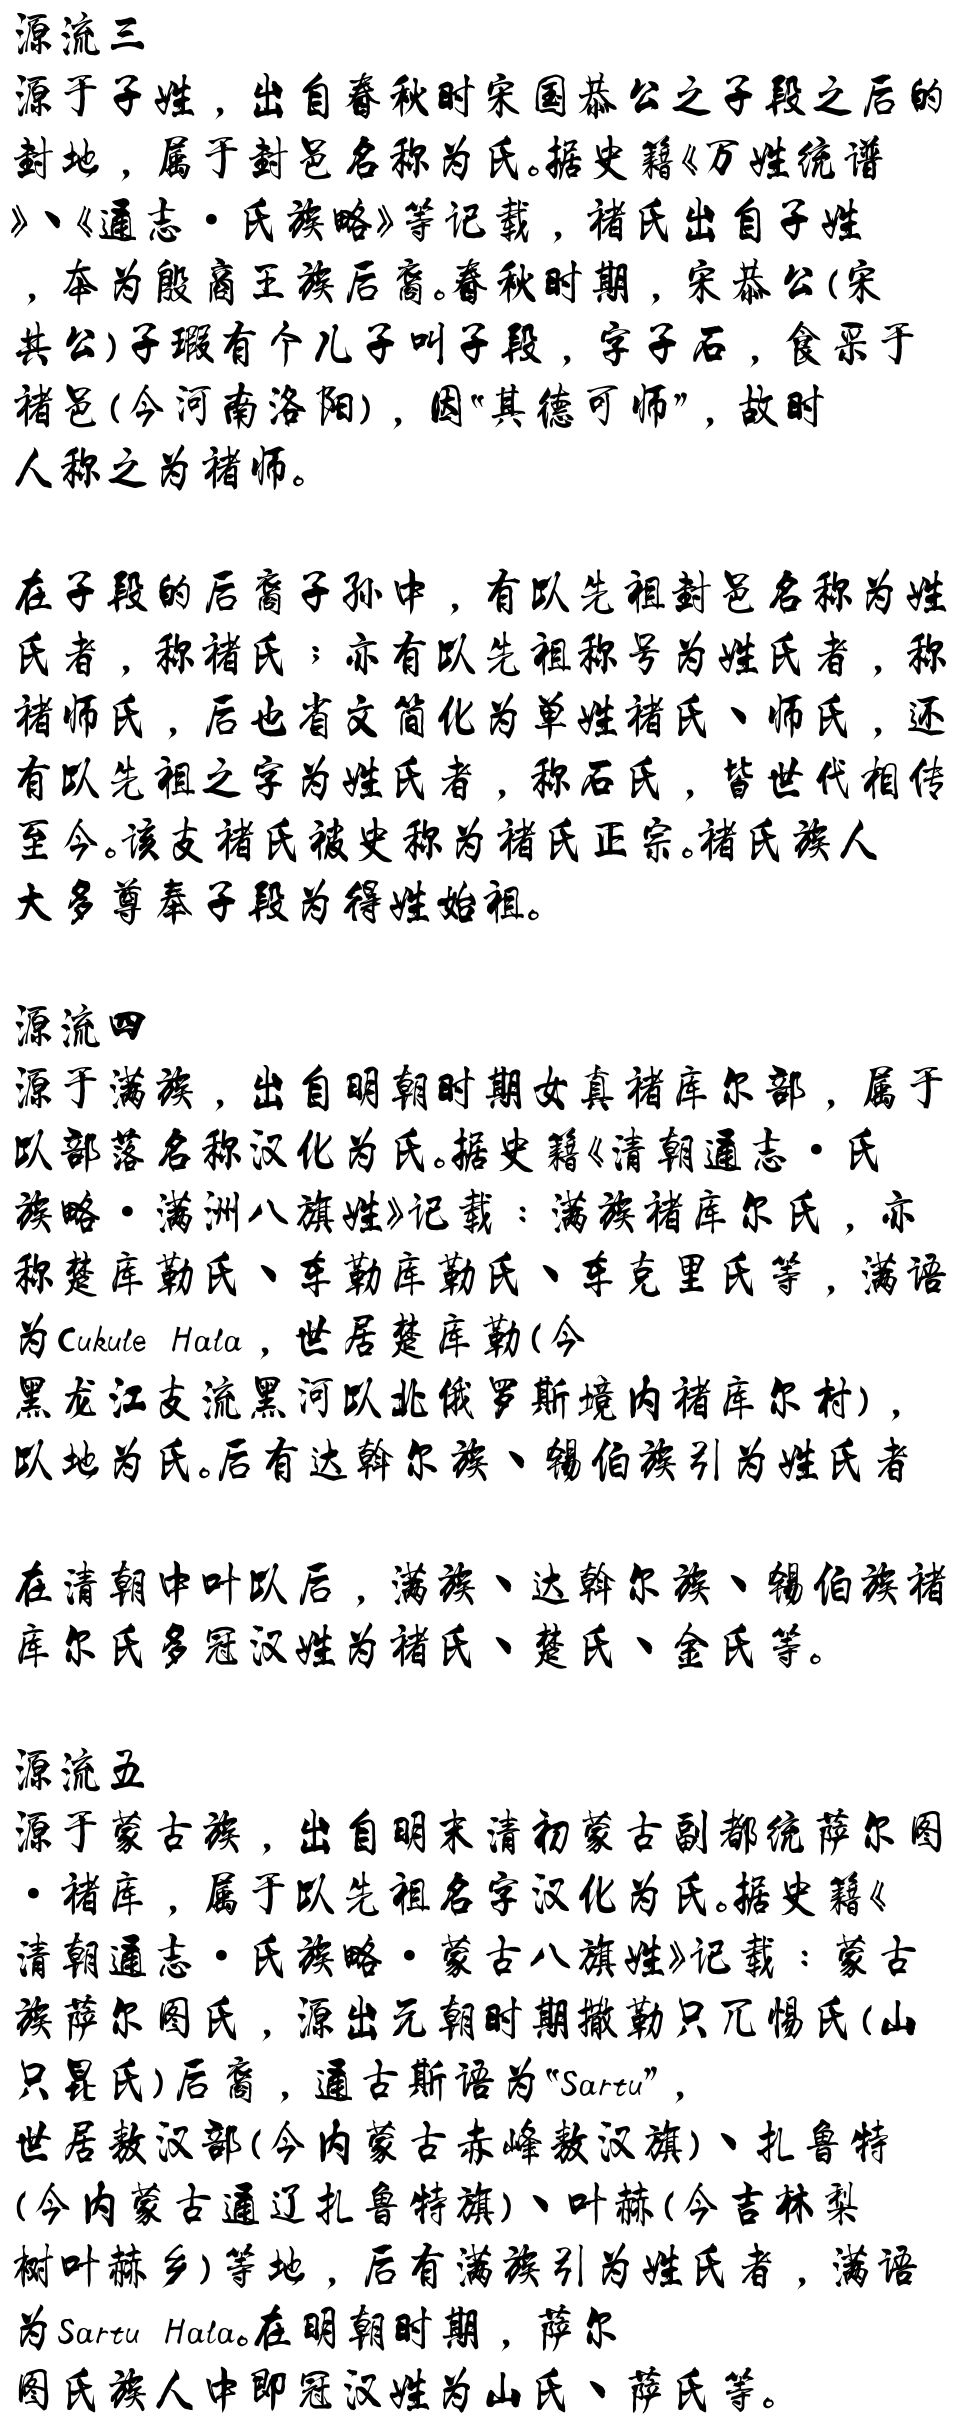 源流三
源于子姓，出自春秋时宋国恭公之子段之后的
封地，属于封邑名称为氏。据史籍《万姓统谱
》、《通志·氏族略》等记载，褚氏出自子姓
，本为殷商王族后裔。春秋时期，宋恭公(宋
共公)子瑕有个儿子叫子段，字子石，食采于
褚邑(今河南洛阳)，因“其德可师”，故时
人称之为褚师。
在子段的后裔子孙中，有以先祖封邑名称为姓
氏者，称褚氏；亦有以先祖称号为姓氏者，称
褚师氏，后也省文简化为单姓褚氏、师氏，还
有以先祖之字为姓氏者，称石氏，皆世代相传
至今。该支褚氏被史称为褚氏正宗。褚氏族人
大多尊奉子段为得姓始祖。
源流四
源于满族，出自明朝时期女真褚库尔部，属于
以部落名称汉化为氏。据史籍《清朝通志·氏
族略·满洲八旗姓》记载：满族褚库尔氏，亦
称楚库勒氏、车勒库勒氏、车克里氏等，满语
为Cukule Hala，世居楚库勒(今
黑龙江支流黑河以北俄罗斯境内褚库尔村)，
以地为氏。后有达斡尔族、锡伯族引为姓氏者
在清朝中叶以后，满族、达斡尔族、锡伯族褚
库尔氏多冠汉姓为褚氏、楚氏、金氏等。
源流五
源于蒙古族，出自明末清初蒙古副都统萨尔图
·褚库，属于以先祖名字汉化为氏。据史籍《
清朝通志·氏族略·蒙古八旗姓》记载：蒙古
族萨尔图氏，源出元朝时期撒勒只兀惕氏(山
只昆氏)后裔，通古斯语为“Sartu”，
世居敖汉部(今内蒙古赤峰敖汉旗)、扎鲁特
(今内蒙古通辽扎鲁特旗)、叶赫(今吉林梨
树叶赫乡)等地，后有满族引为姓氏者，满语
为Sartu Hala。在明朝时期，萨尔
图氏族人中即冠汉姓为山氏、萨氏等。